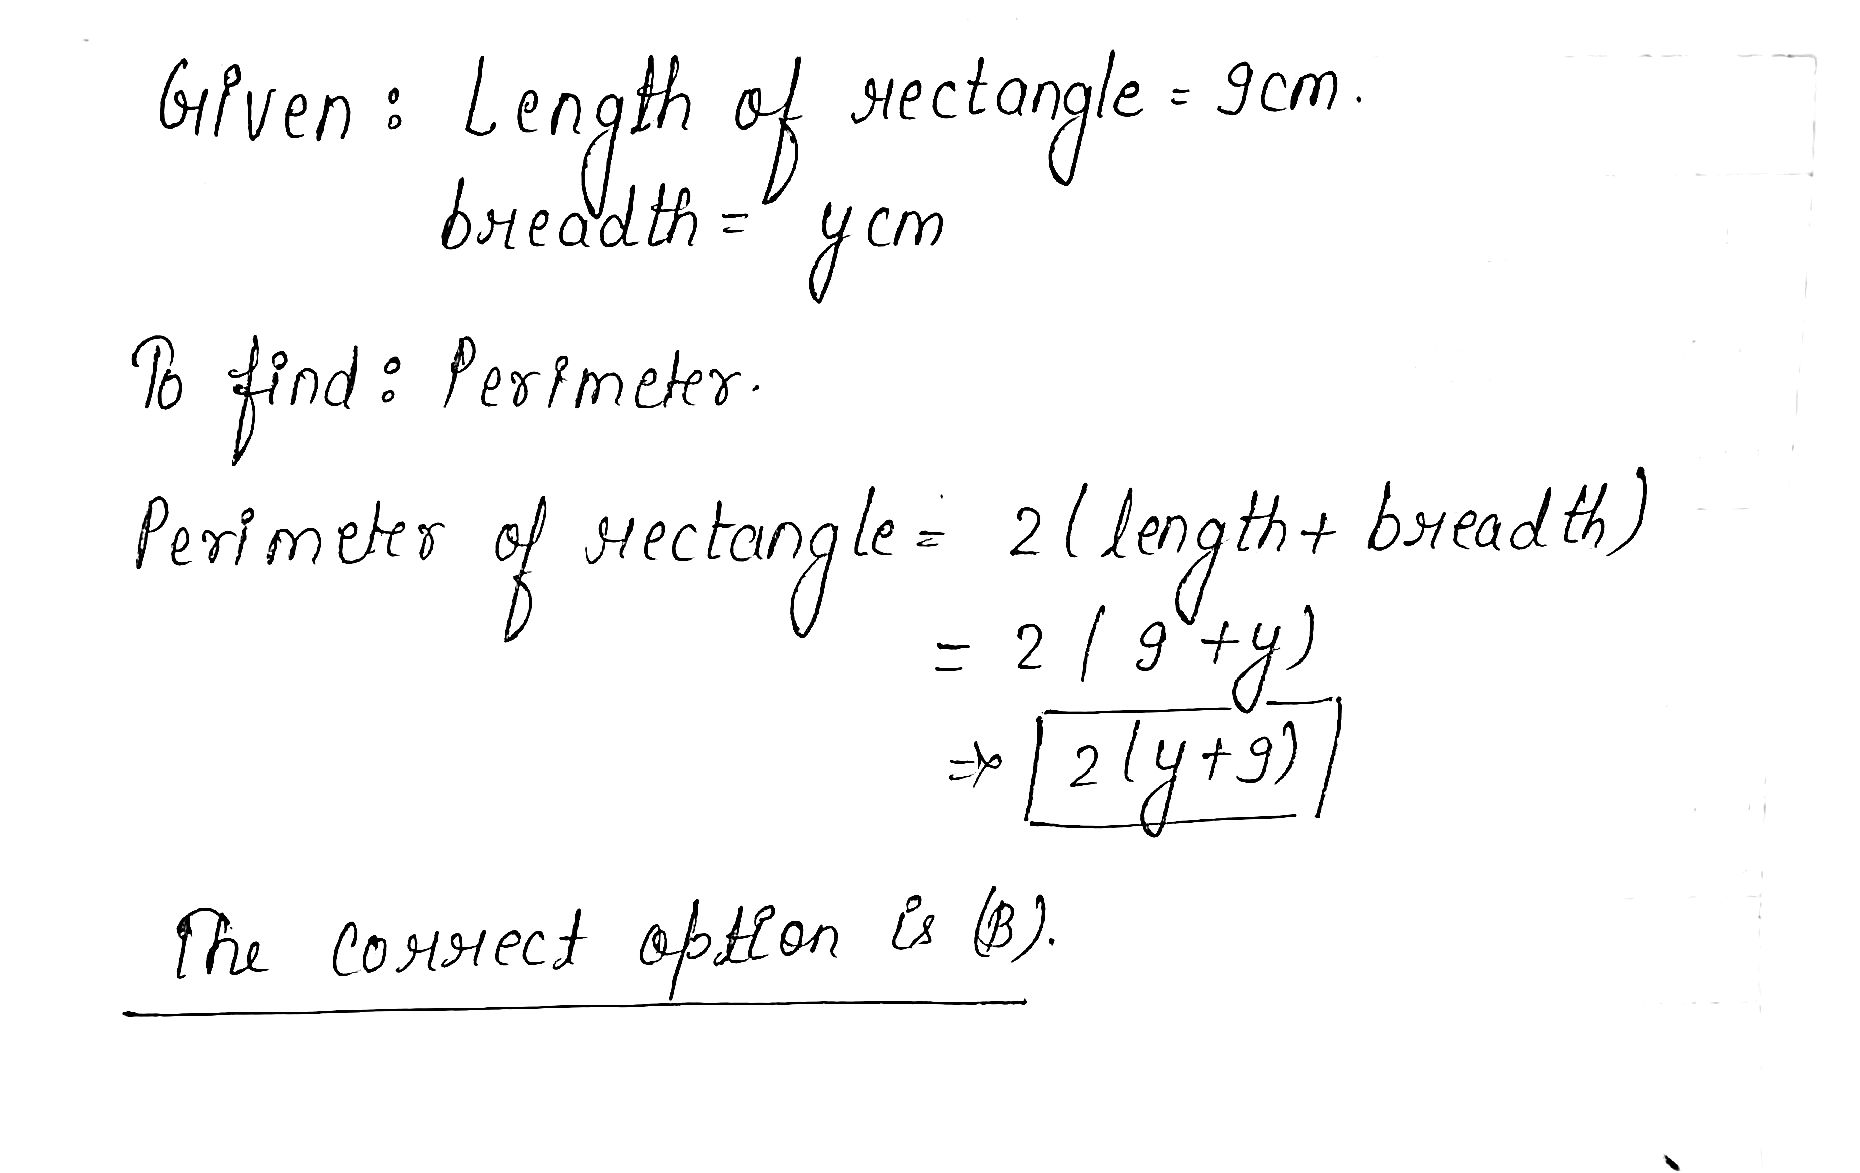 Given : Length of rectangle = 9cm.
breadth = y cm
To find : Perimeter.
Perimeter of rectangle = 2 ( length + breadth)
= 2 ( 9 + y)
⇒ 2 (y + 9)
The correct option is (B).